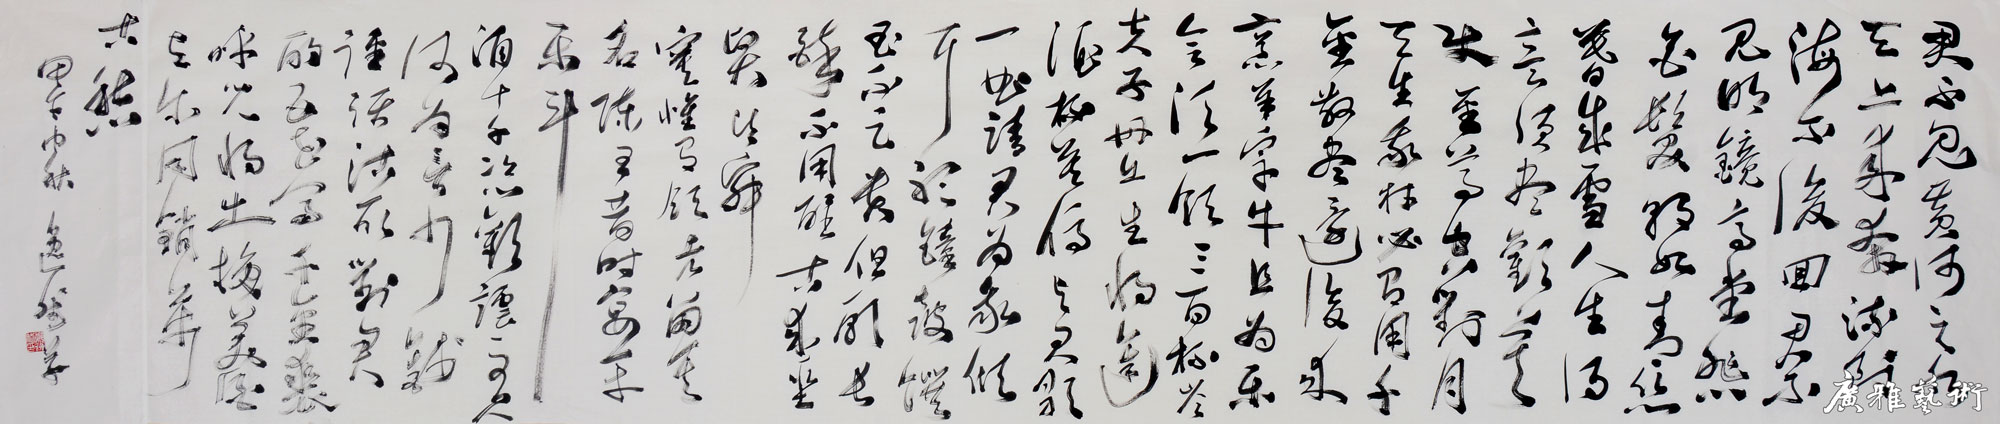 君不见黄河之水
天上来奔流到
海不復回君不
见明镜高堂悲
白髮朝如青丝
暮成雪人生得
意须尽歡莫
使金尊空對月
天生我材必有用千
金散尽还復来
烹羊宰牛且为乐
会须一饮三百杯岑
夫子丹丘生将进
酒杯莫停与君歌
一曲请君为我倾
耳聽鐘鼓馔
玉不足贵但願长
醉不用醒古来圣
贤皆寂
寞惟有饮者留其
名陈王昔时宴平
乐斗
酒十千恣歡谑主人
何为言少钱
径须沽取對君
酌五花马千金裘
呼儿将出换美酒
与尔同销萬
古愁
甲午中秋 草
廣雅藝術